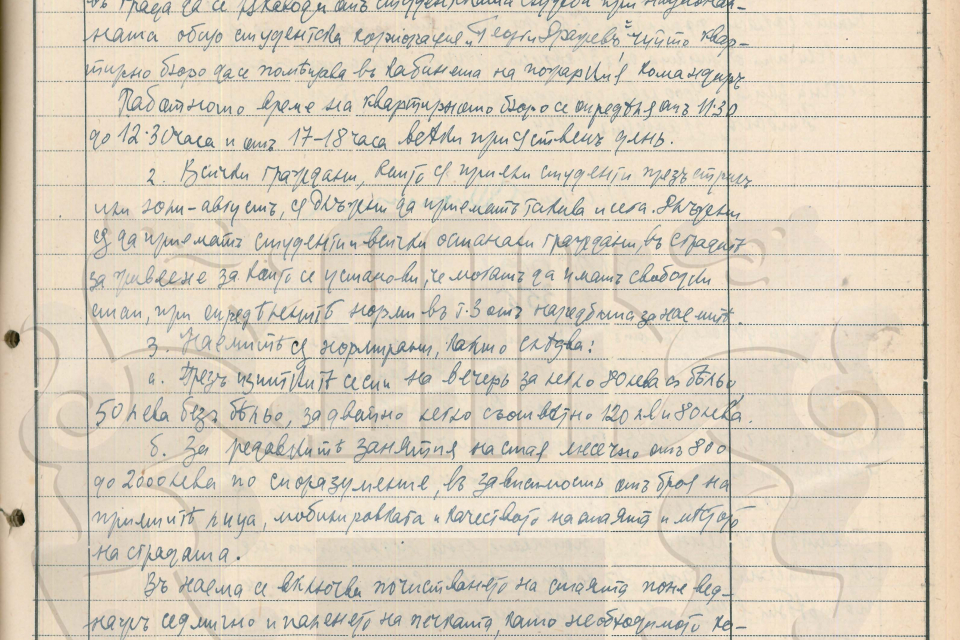 въ града да се находи отъ студентската служба при национал-
ната общо студентска корпорация "Георги Дражевъ" чийто квар-
тирно бюро да се помѣщава въ кабинета на пожарния командиръ
Работното време на квартирното бюро се опредѣля отъ 11:30
до 12:30 часа и отъ 17-18 часа всѣки присѫтственъ день.
2. Всички граждани, които сѫ приели студенти презъ
юли-августъ, сѫ длъжни да приематъ такива и сега. Длъжни
сѫ да приематъ студенти и всички останали граждани, въ сградитѣ
за живеене за които се установи, че могатъ да иматъ свободни
стаи, при опредѣленитѣ норми въ т. 3 отъ наредбата за наемитѣ.
3. Наемитѣ сѫ нормирани, както следва:
а. Презъ изпитнитѣ сесии на вечерь за легло 80 лева съ бѣльо
50 лева безъ бѣльо, за двойно легло съответно 120 лв и 80 лева.
б. За редовнитѣ занятия на стая месечно отъ 800
до 2000 лева по споразумение, въ зависимость отъ броя на
приетитѣ лица, мобилировката и качеството на стаята и мѣстото
на сградата.
Въ наема се включва почистването на стаята поне вед-
нажъ седмично и паленето на печката, като необходимото ко-